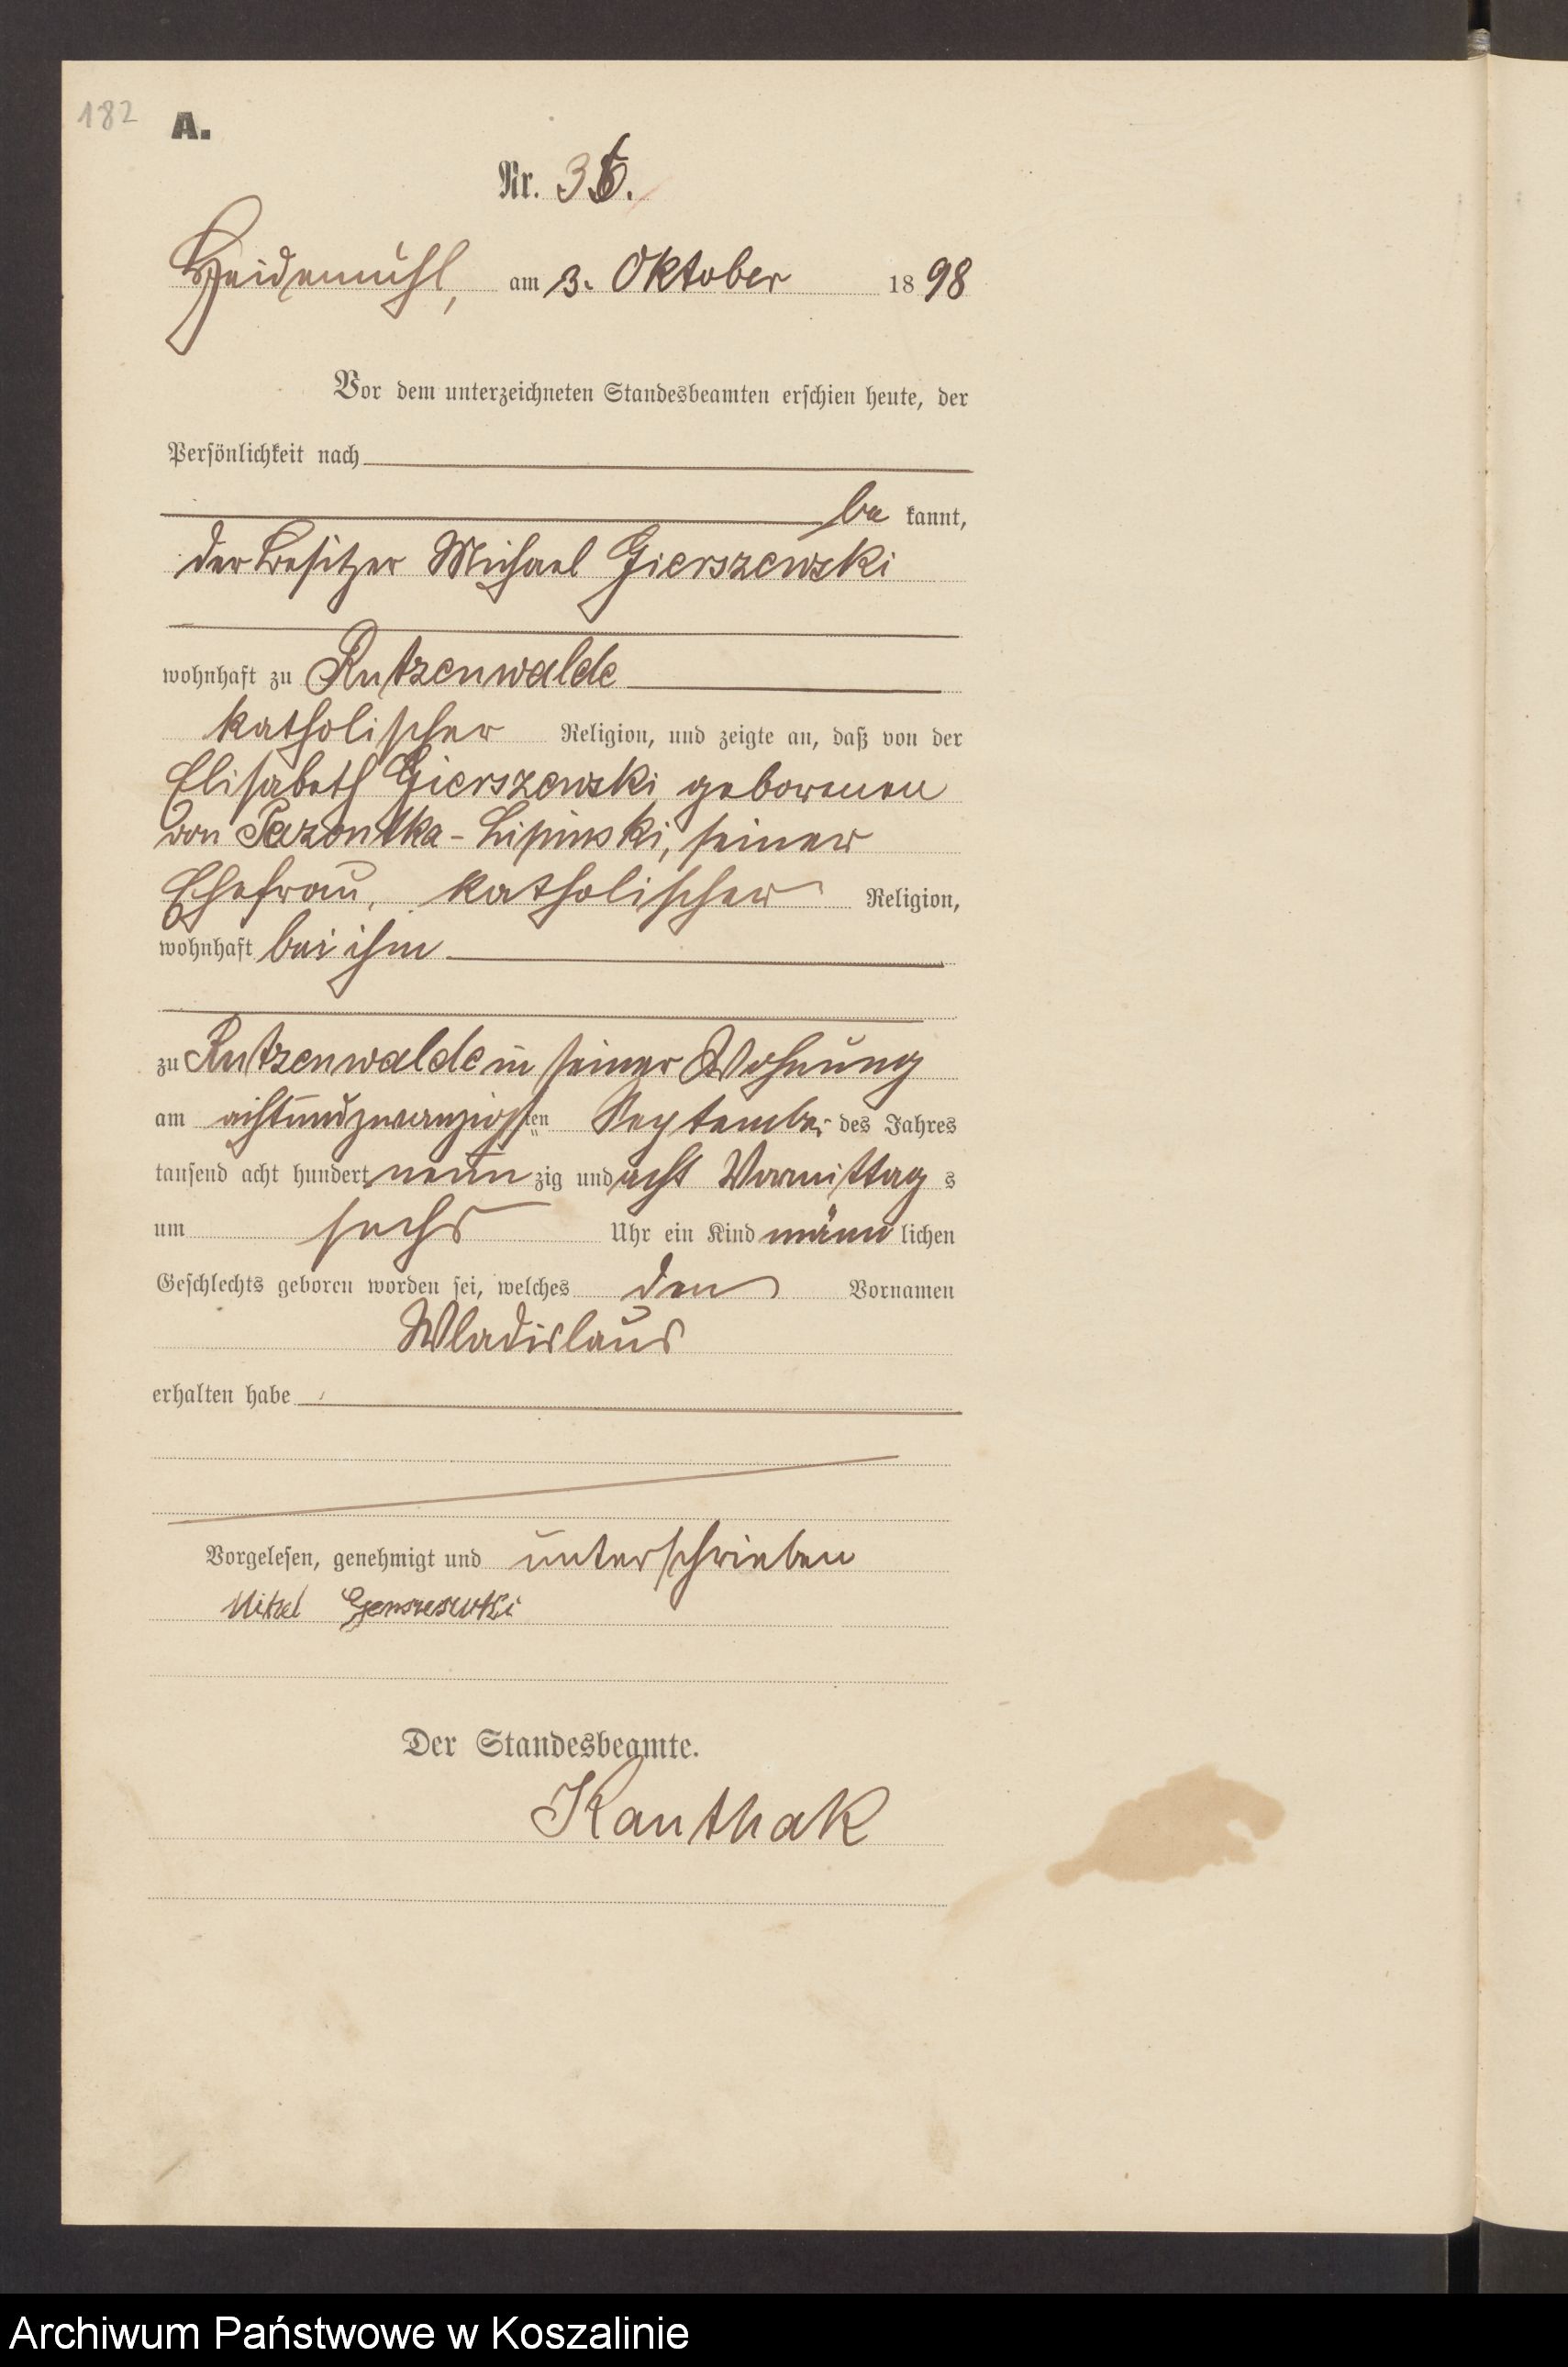 182
A.
Nr. 36.
Heidemühl, am 3. Oktober 1898
Vor dem unterzeichneten Standesbeamten erschien heute, der
Persönlichkeit nach
be kannt,
der Besitzer Michael Gierszewski
wohnhaft zu Rutzenwalde
katholischer Religion, und zeigte an, daß von der
Elisabeth Gierszewski geborenen
von Pazontka-Lipinski, seiner
Ehefrau, katholischer Religion,
wohnhaft bei ihm
zu Rutzenwalde in seiner Wohnung
am achtundzwanzigsten September des Jahres
tausend acht hundert neun zig und acht Vormittag s
um sechs Uhr ein Kind männ lichen
Geschlechts geboren worden sei, welches den Vornamen
Wladislaus
erhalten habe
Vorgelesen, genehmigt und unterschrieben
Der Standesbeamte.
Kanthak
Archiwum Państwowe w Koszalinie